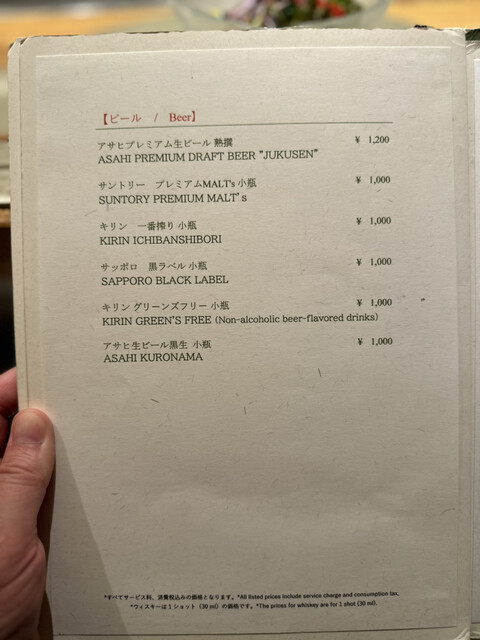 【ビール / Beer】
アサヒプレミアム生ビール 熟撰 ¥ 1,200
ASAHI PREMIUM DRAFT BEER "JUKUSEN"
サントリー プレミアムMALT's 小瓶 ¥ 1,000
SUNTORY PREMIUM MALT's
キリン 一番搾り 小瓶 ¥ 1,000
KIRIN ICHIBANSHIBORI
サッポロ 黒ラベル 小瓶 ¥ 1,000
SAPPORO BLACK LABEL
キリン グリーンズフリー 小瓶 ¥ 1,000
KIRIN GREEN'S FREE (Non-alcoholic beer-flavored drinks)
アサヒ生ビール黒生 小瓶 ¥ 1,000
ASAHI KURONAMA
*すべてサービス料、消費税込みの価格となります。*All listed prices include service charge and consumption tax.
*ウィスキーは1ショット（30 ml）の価格です。*The prices for whiskey are for 1 shot (30 ml).